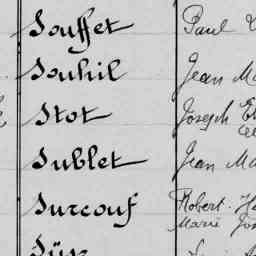 Souffet Paul
Souhil Jean Ma
Stot Joseph
Sublet Jean Ma
Surcouf Robert
Marie Jos
Süss